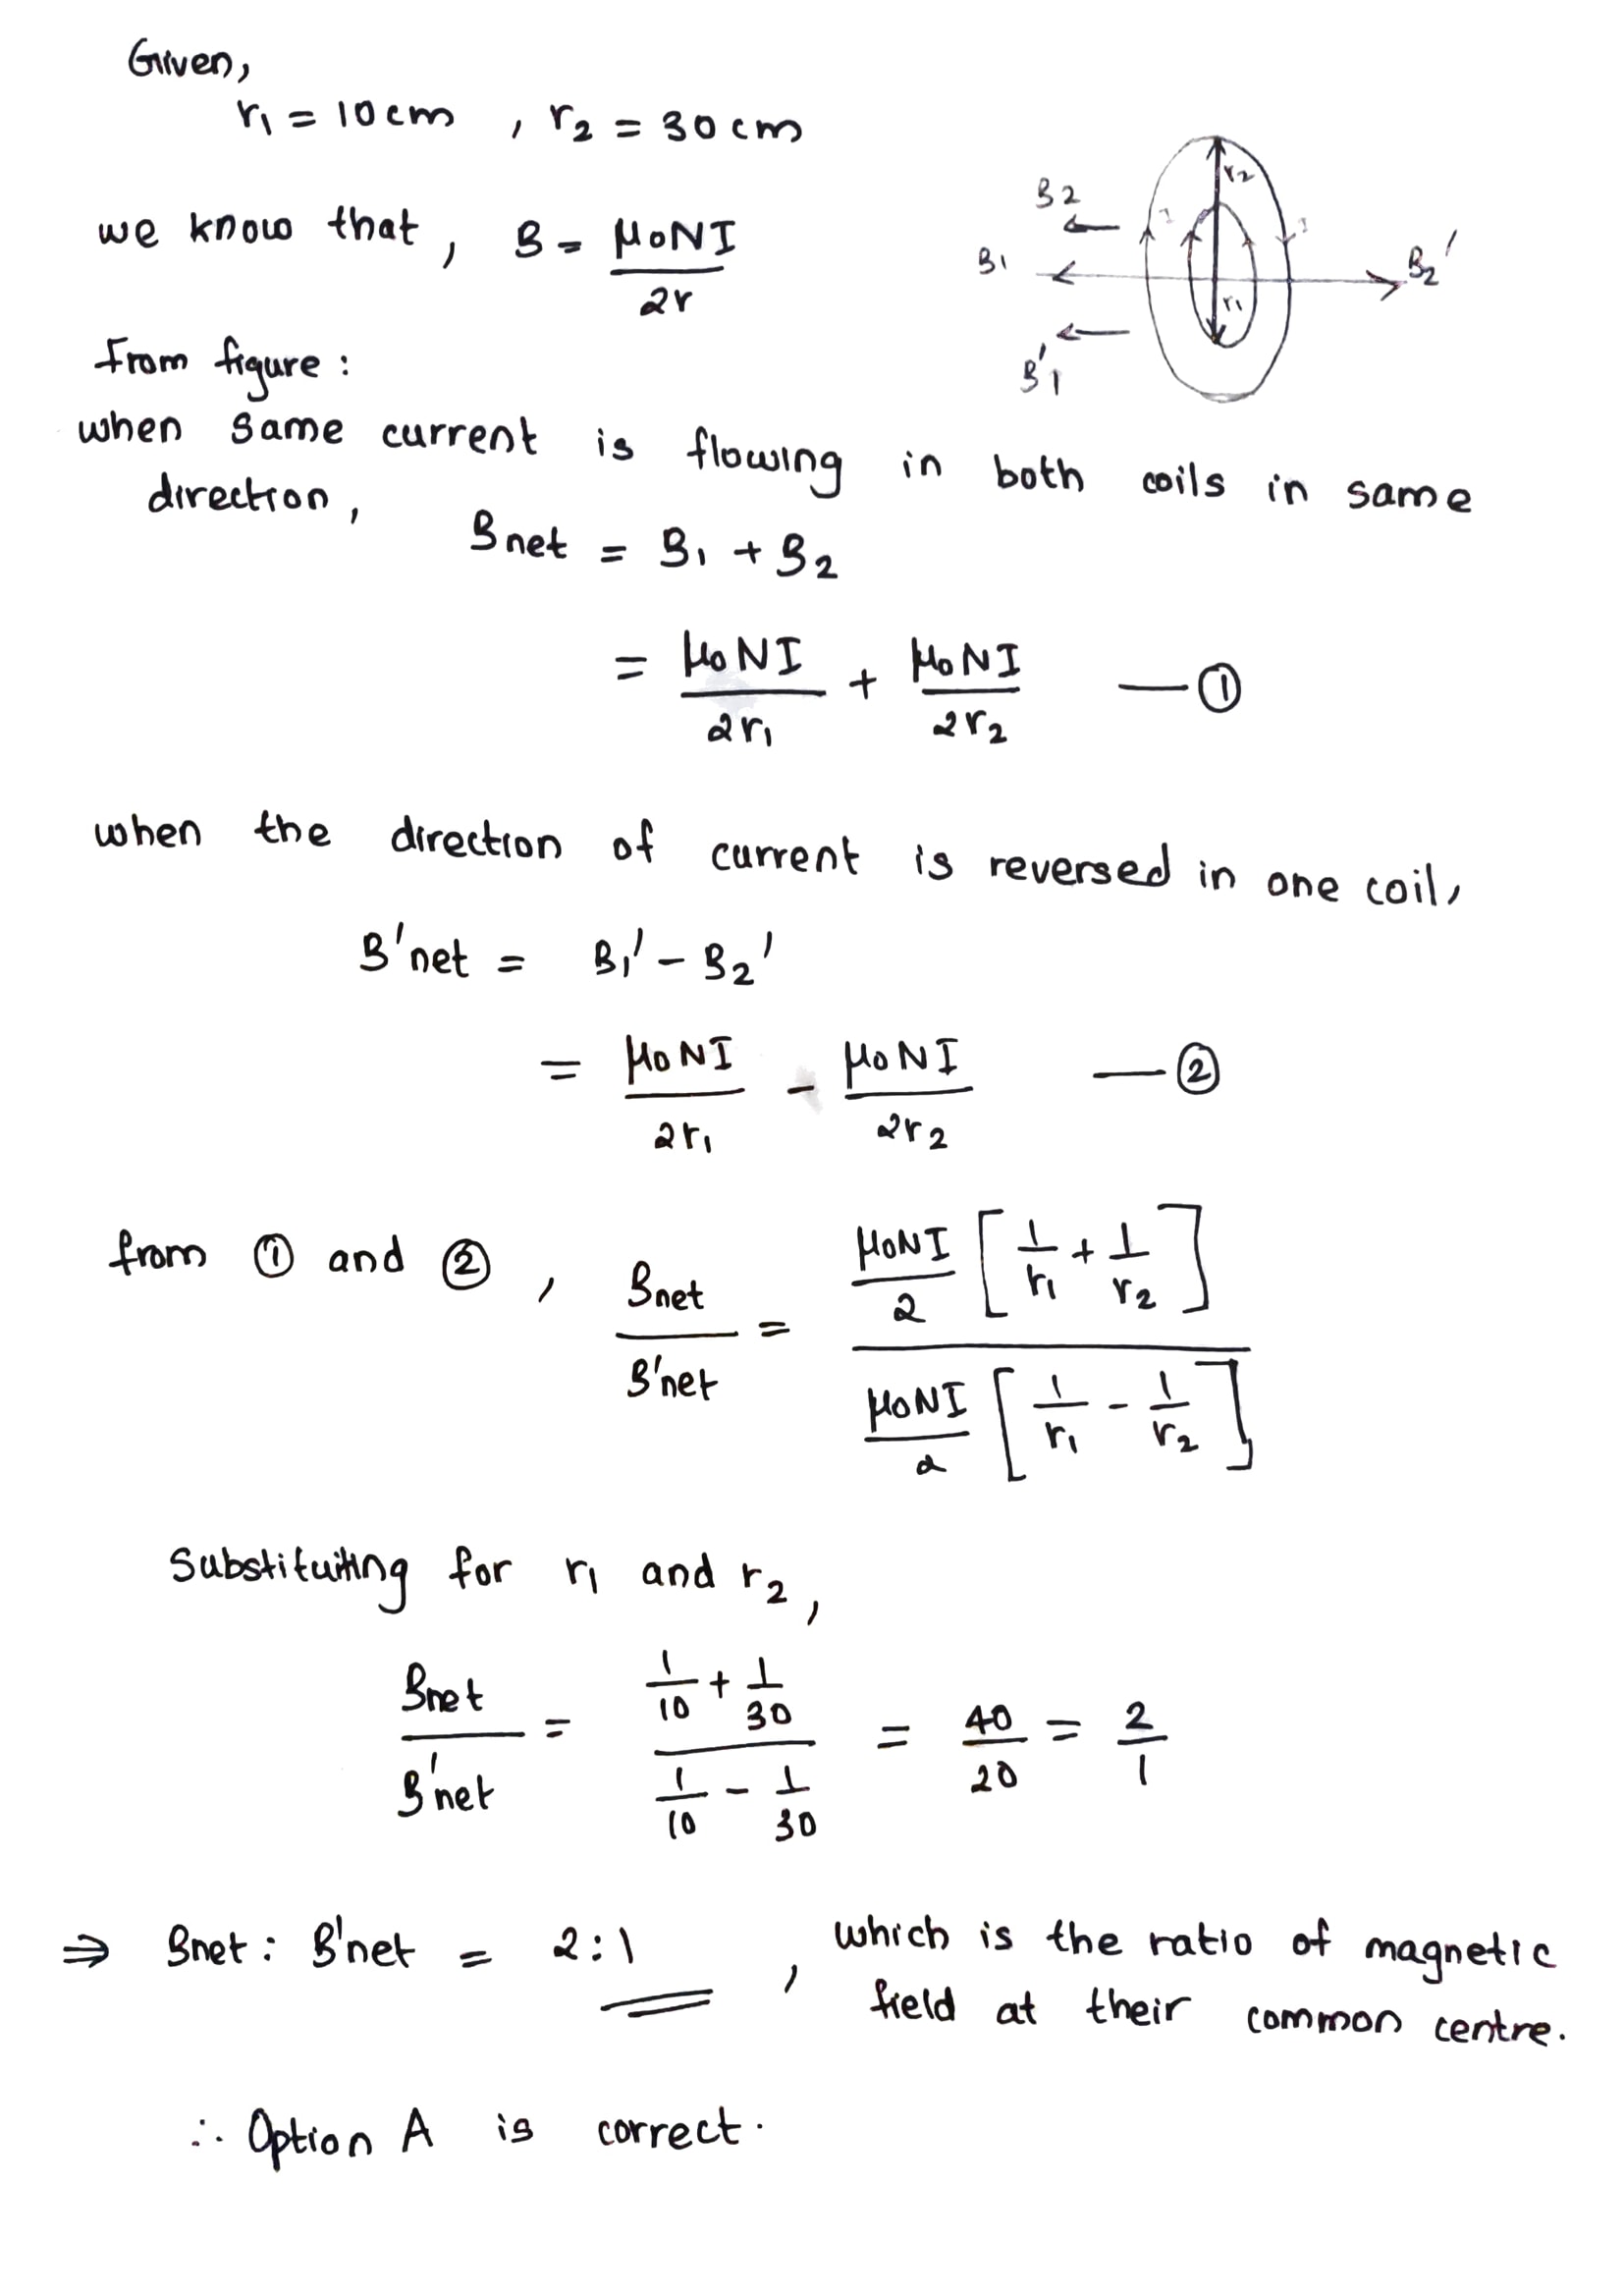 Given,
r₁ = 10 cm , r₂ = 30 cm
we know that, B = μ₀NI / 2r
r₂
B₂
I
I
B₁
B₂′
r₁
B′₁
From figure :
when same current is flowing in both coils in same
direction,
Bnet = B₁ + B₂
= μ₀NI / 2r₁ + μ₀NI / 2r₂ — ①
when the direction of current is reversed in one coil,
B′net = B₁′ − B₂′
= μ₀NI / 2r₁ − μ₀NI / 2r₂ — ②
from ① and ② , Bnet / B′net = μ₀NI / 2 [ 1/r₁ + 1/r₂ ] / μ₀NI / 2 [ 1/r₁ − 1/r₂ ]
for r₁ and r₂,
Bnet / B′net = (1/10 + 1/30) / (1/10 − 1/30) = 40/20 = 2/1
⇒ Bnet : B′net = 2:1 , which is the ratio of magnetic
field at their common centre.
∴ Option A is correct.